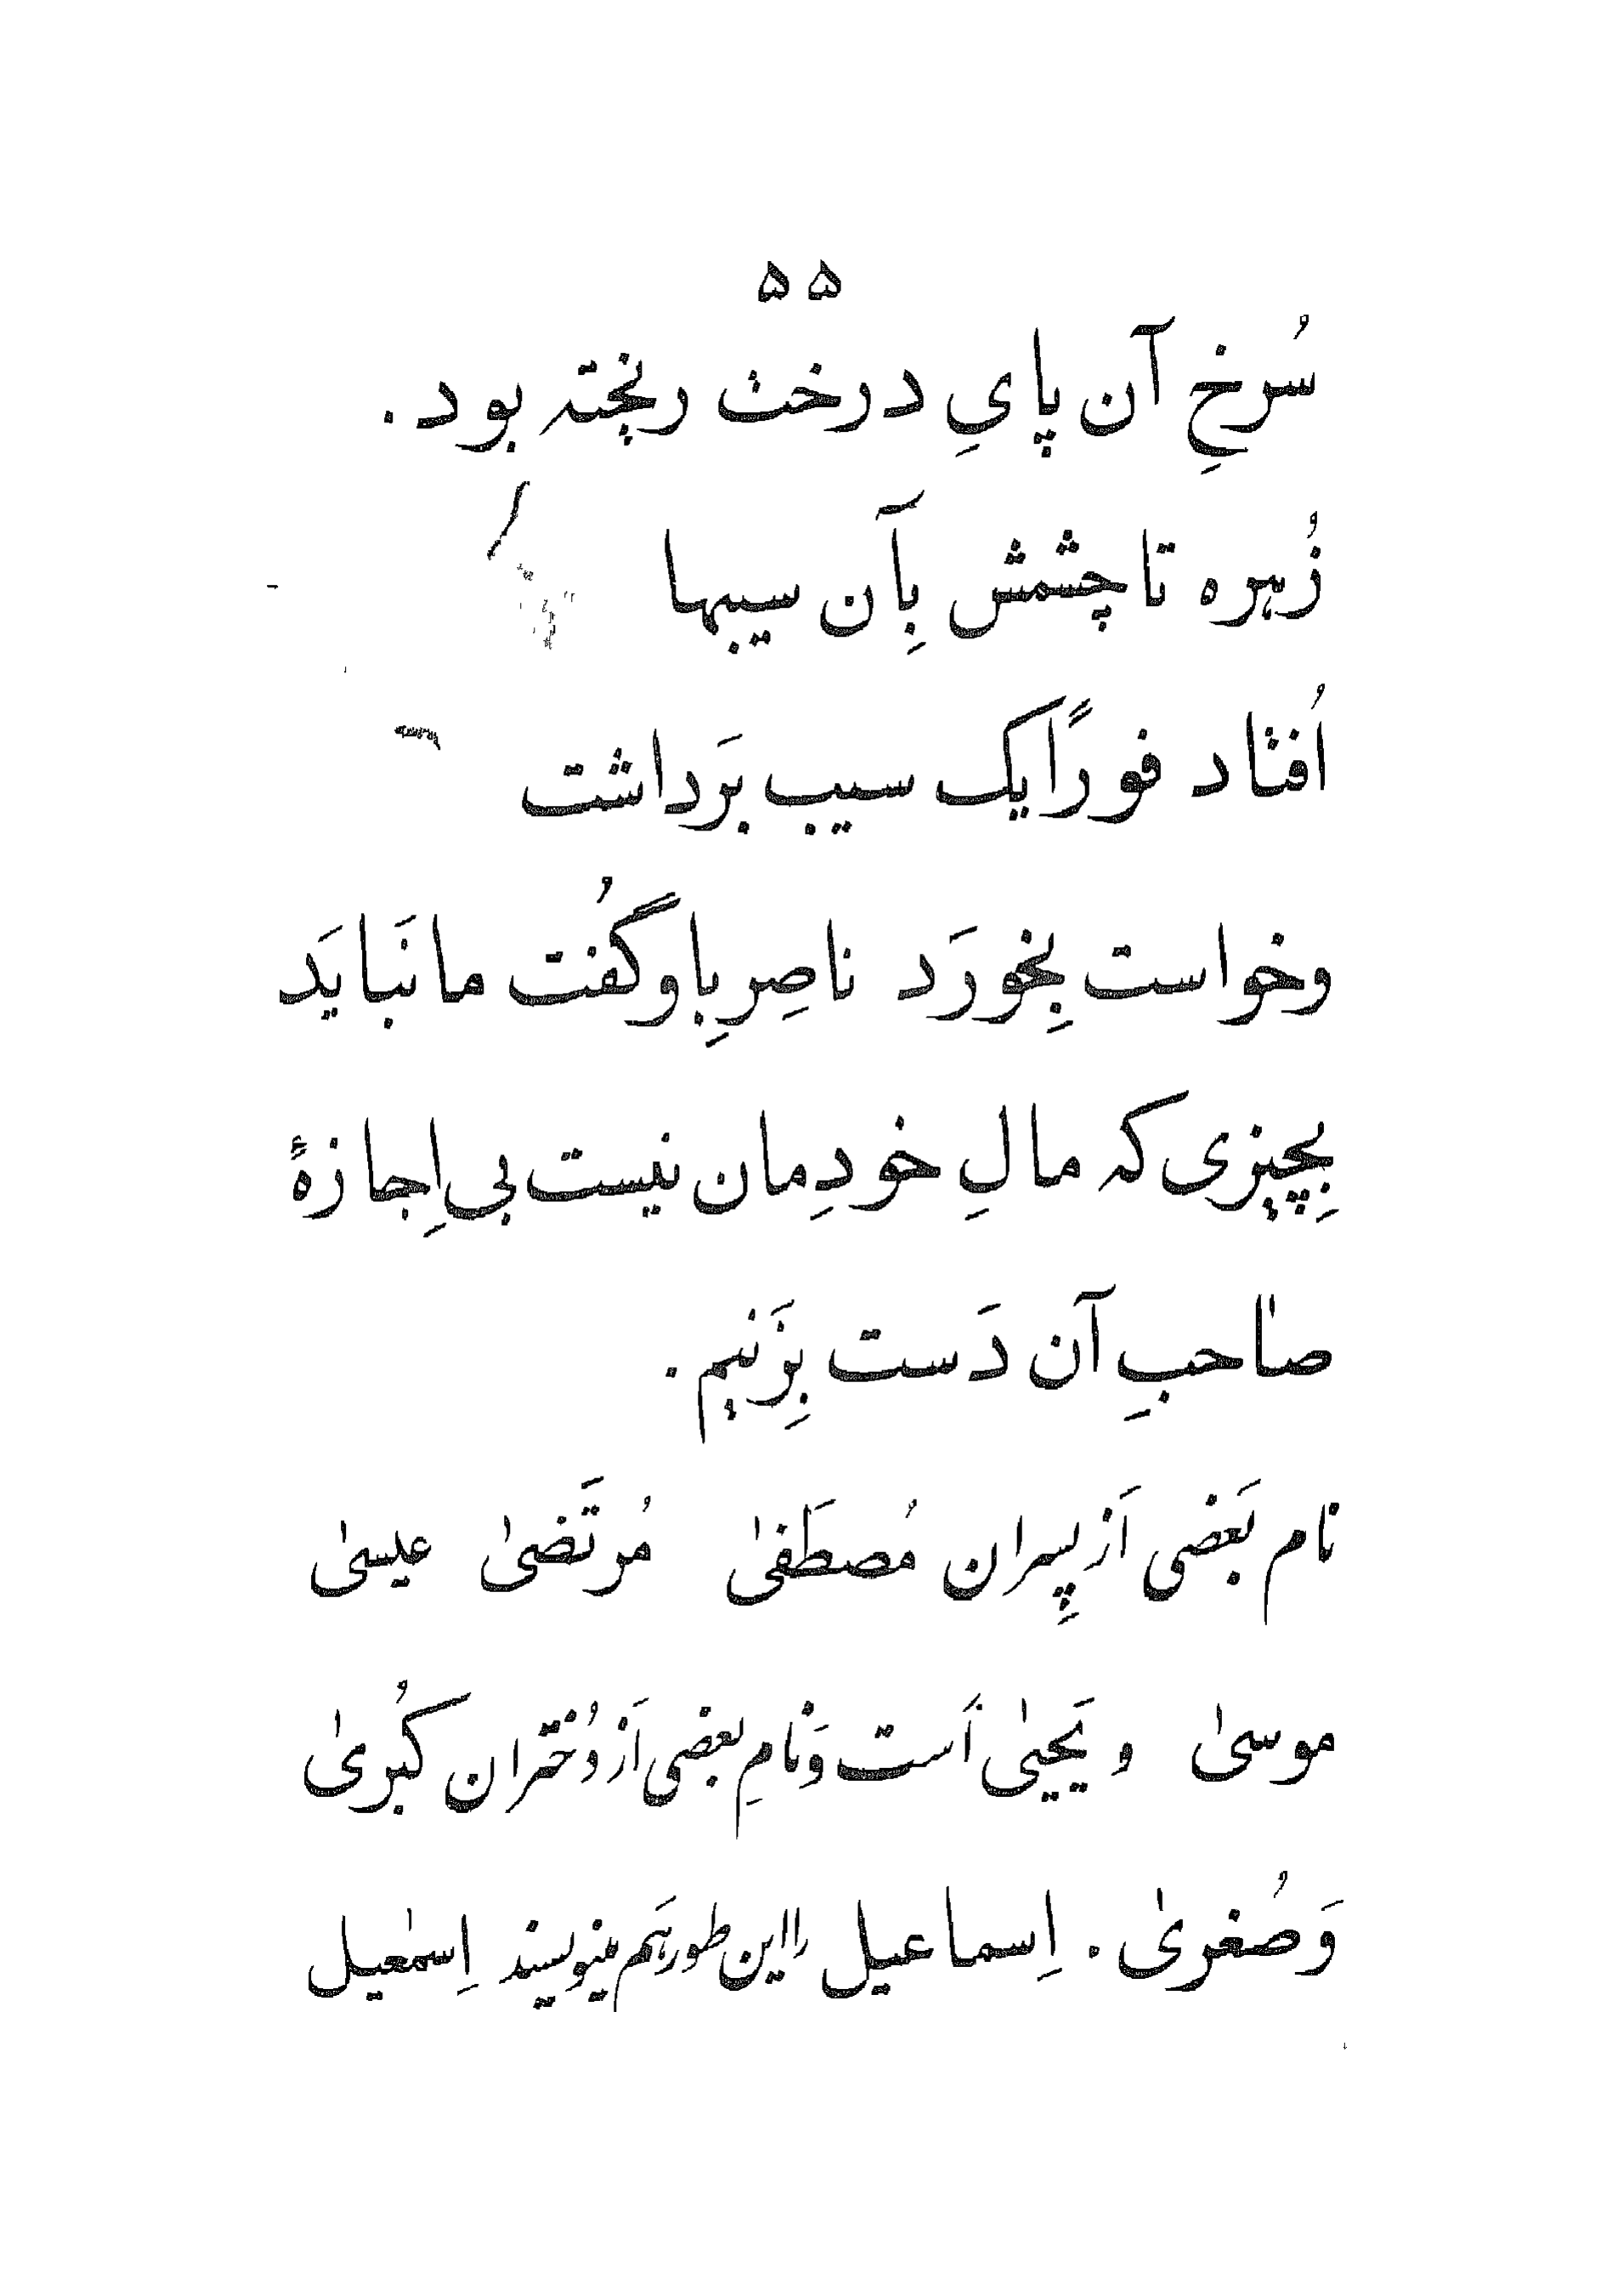 ۵۵
سُرخِ آن پایِ درخت ریخته بود.
زُهره تا چشمش بِآن سیبها
اُفتاد فوراً یک سیب بَرداشت
وخواست بِخورَد ناصِر بِاو گُفت ما نَبایَد
بِچیزی که مالِ خودِمان نیست بی اِجازهٔ
صاحبِ آن دَست بِزَنیم.
نام بَعضی اَز پِسران مُصطَفیٰ مُرتَضیٰ عیسیٰ
موسیٰ و یَحییٰ اَست وَنامِ بعضی اَز دُختران کُبریٰ
وَصُغریٰ. اِسماعیل را این طور هَم مینویسند اِسمٰعیل